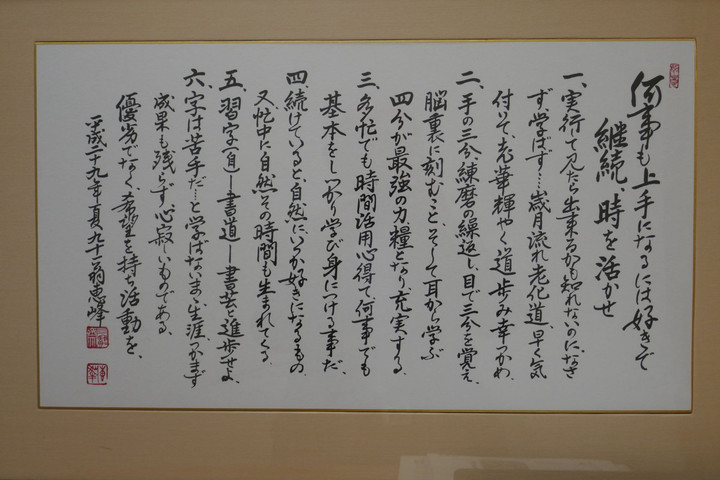 何事も上手になるには好きで
継続、時を活かせ
一、実行て見たら出来るかも知れないのになさ
ず、学ばず…歳月流れ老化道、早く気
付いて、光華輝やく道歩み幸つかめ、
二、手の三分、練磨の繰返し、目で三分を覚え、
脳裏に刻むこと、そして耳から学ぶ
四分が最強の力糧となり、充実する、
三、多忙でも時間活用心得て、何事でも
基本をしっかり学び身につける事だ、
四、続けていると、自然にいつか好きになるもの、
又、忙中に自然その時間も生まれてくる、
五、習字(自)ー書道ー書芸と進歩せよ、
六、字は苦手だーと学ばないまゝ生涯つかまず
成果も残らず、心寂しいものである、
優劣でなく、希望を持ち活動を、
平成二十九年夏九十一翁恵峰